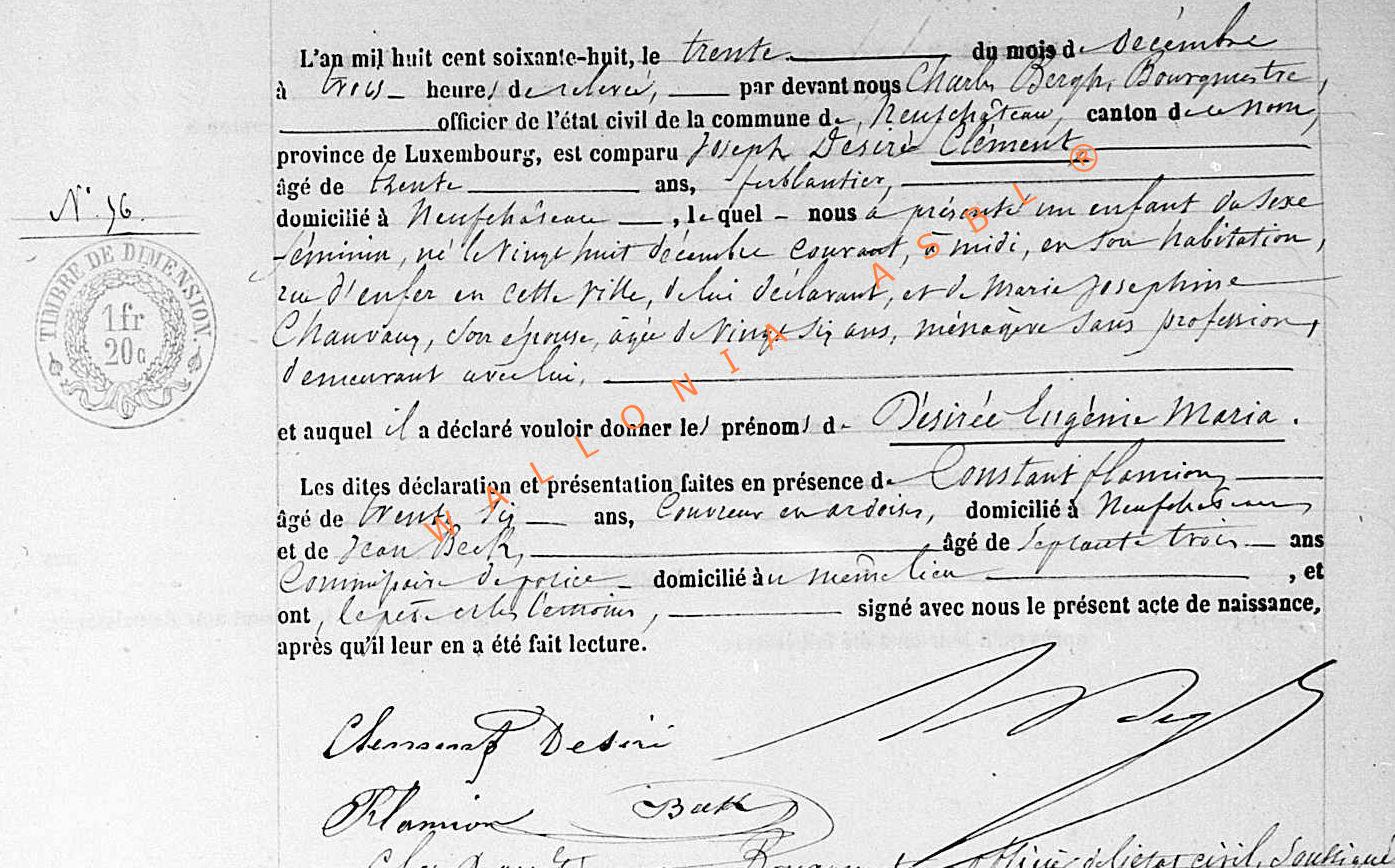 L'an mil huit cent soixante-huit, le trente du mois de Décembre
à trois heures de relevée, par devant nous Charles Bergh, Bourgmestre,
officier de l'état civil de la commune de Neufchâteau, canton de ce nom,
province de Luxembourg, est comparu Joseph Désiré Clément
âgé de trente ans, ferblantier,
domicilié à Neufchâteau, lequel nous a présenté un enfant du sexe
N°. 96.
féminin, né le vingt huit décembre courant, à midi, en son habitation,
rue d'enfer en cette ville, de lui déclarant, et de Marie Josephine
Chauvaux, son épouse, agée de vingt six ans, ménagère sans profession,
demeurant avec lui,
TIMBRE DE DIMENSION.
1 fr
20 c
et auquel il a déclaré vouloir donner les prénoms de Désirée Eugénie Maria.
Les dites déclaration et présentation faites en présence de Constant Flamion
âgé de trente six ans, Couvreur en ardoises, domicilié à Neufchâteau
et de Jean Beck, âgé de septante trois ans
Commissaire de police domicilié au même lieu, et
ont, le père et les témoins, signé avec nous le présent acte de naissance,
après qu'il leur en a été fait lecture.
WALLONIA ASBL ®
Clement Desiré
Flamion Beck
civil, soussigné